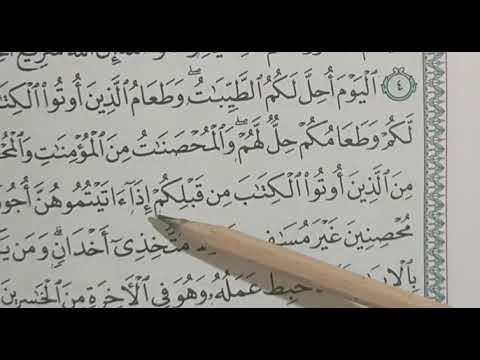 ٱللَّهَ سَرِيعُ
٤ ٱلْيَوْمَ أُحِلَّ لَكُمُ ٱلطَّيِّبَٰتُ ۖ وَطَعَامُ ٱلَّذِينَ أُوتُوا۟ ٱلْكِتَ
لَّكُمْ وَطَعَامُكُمْ حِلٌّ لَّهُمْ ۖ وَٱلْمُحْصَنَٰتُ مِنَ ٱلْمُؤْمِنَٰتِ وَٱلْمُ
مِنَ ٱلَّذِينَ أُوتُوا۟ ٱلْكِتَٰبَ مِن قَبْلِكُمْ إِذَآ ءَاتَيْتُمُوهُنَّ أُجُو
مُحْصِنِينَ غَيْرَ مُتَّخِذِىٓ أَخْدَانٍ ۗ وَمَن يَ
حَبِطَ عَمَلُهُۥ وَهُوَ فِى ٱلْأَخِرَةِ مِنَ ٱلْخَٰسِرِينَ